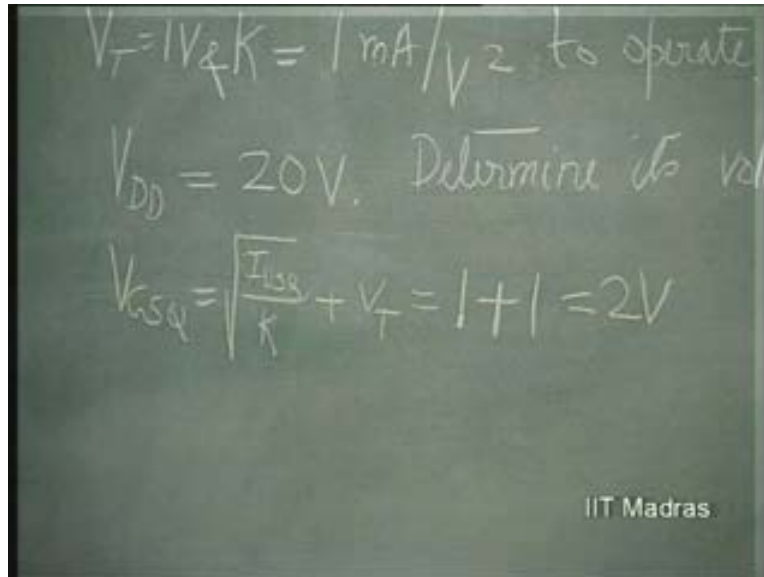 V_T = 1V & K = 1 mA/V² to operate
V_DD = 20V. Determine its vol
V_GSQ = √(I_DSQ/K) + V_T = 1 + 1 = 2V
IIT Madras